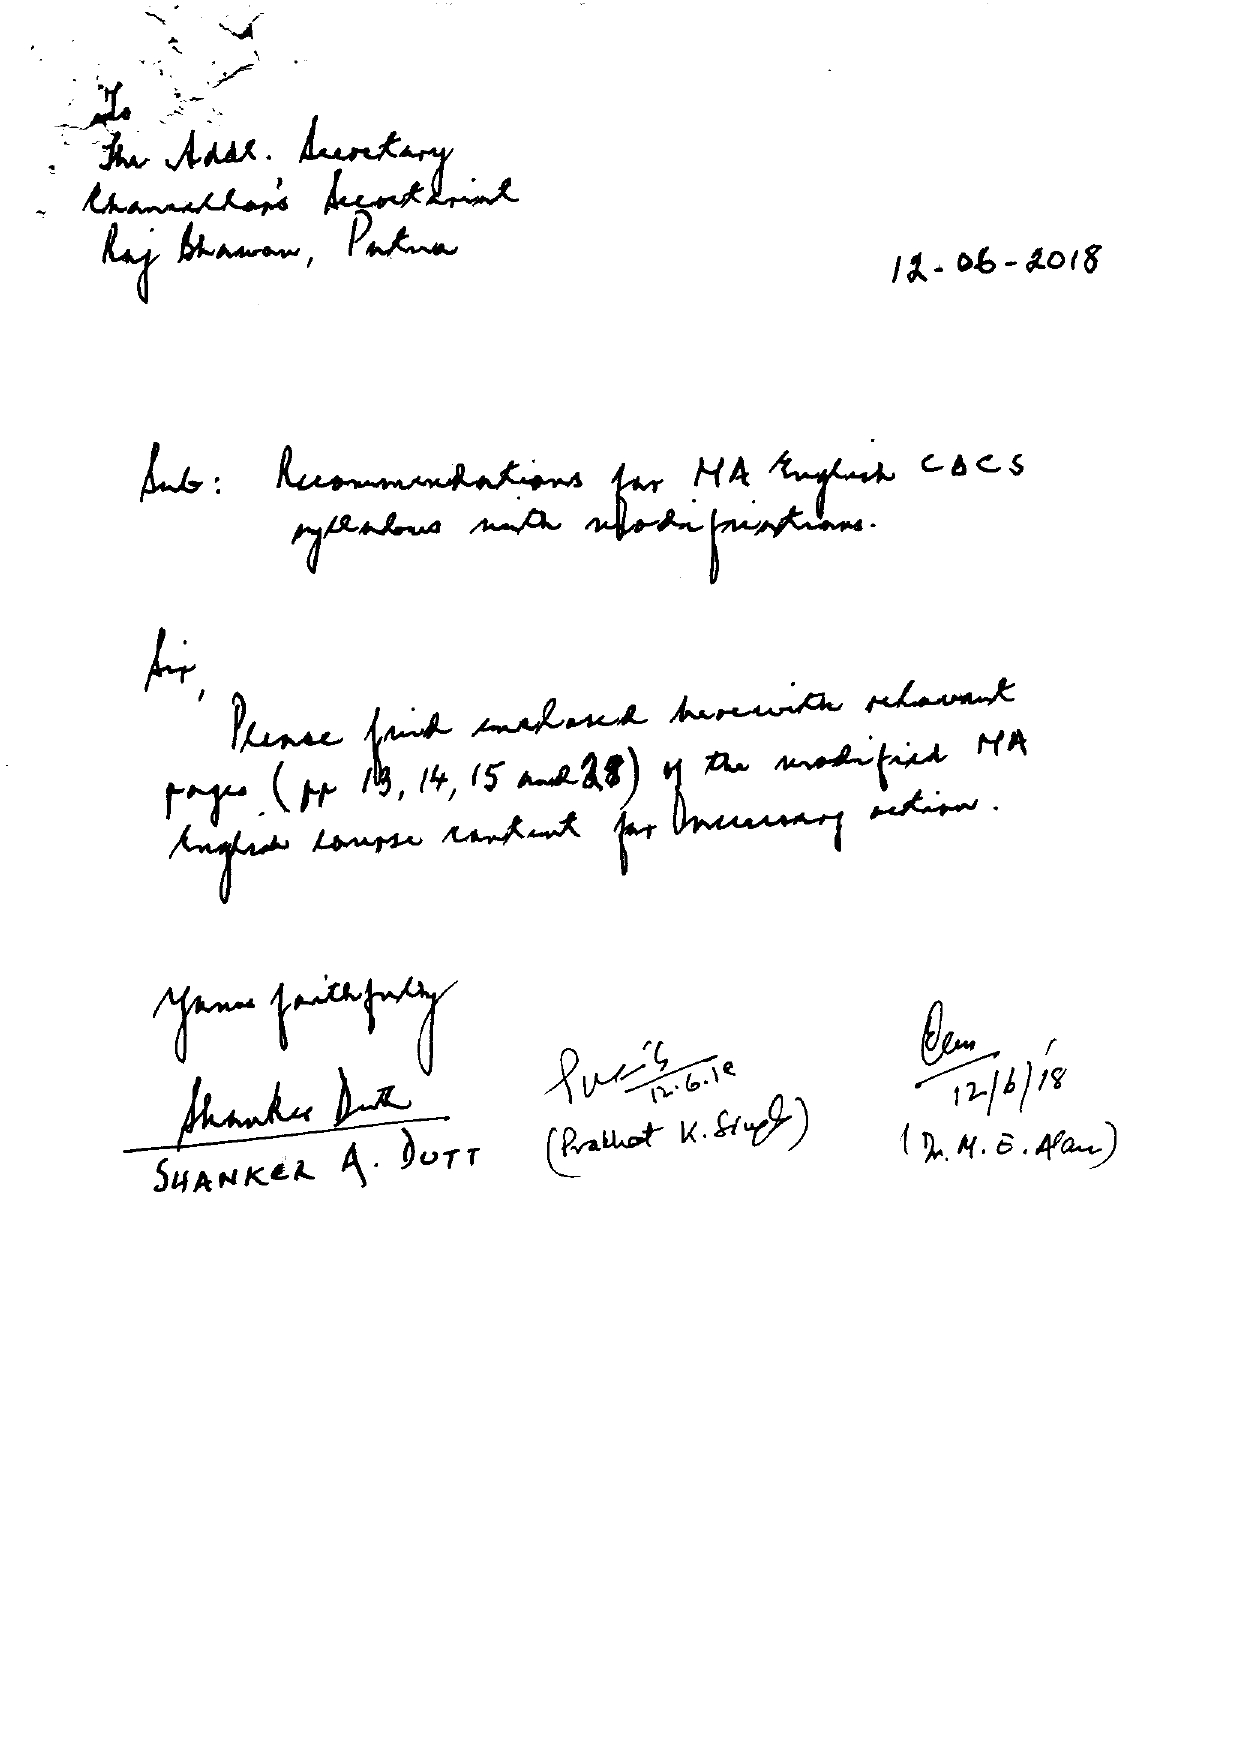 To
The Addl. Secretary
Chancellor's Secretariat
Raj Bhawan, Patna
12-06-2018
Sub: Recommendations for MA English CBCS
syllabus with modifications.
Sir,
Please find enclosed herewith relevant
pages (pp 13, 14, 15 and 28) of the modified MA
English course content for necessary action.
Yours faithfully
Shanker Dutt
SHANKER A. DUTT
12.6.18
(Prabhat K. Singh)
12/6/18
(Dr. M. E. Alam)